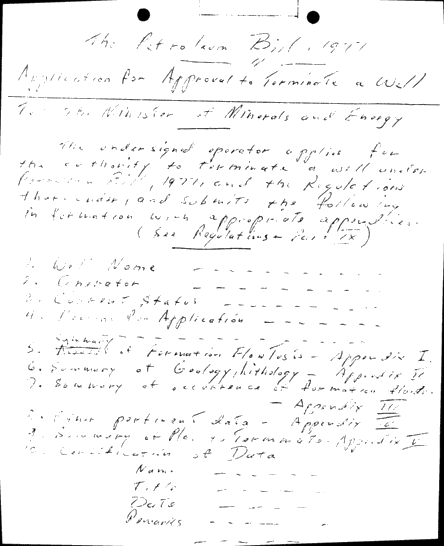 The Petroleum Bill, 1977
Application for Approval to Terminate a Well
To: The Minister of Minerals and Energy
The undersigned operator applies for
the authority to terminate a well under
Petroleum Bill, 1977, and the Regulations
thereunder, and submits the following
information with appropriate appendices.
(See Regulations - Part IX)
1. Well Name
2. Operator
3. Current Status
4. Reason for Application
5. Summary of Formation Flow Tests - Appendix I
6. Summary of Geology, Lithology - Appendix II
7. Summary of occurrence of formation fluids
- Appendix III
8. Other pertinent data - Appendix
9. Summary of Plan to Terminate - Appendix V
10. Certification of Data
Name
Title
Date
Remarks